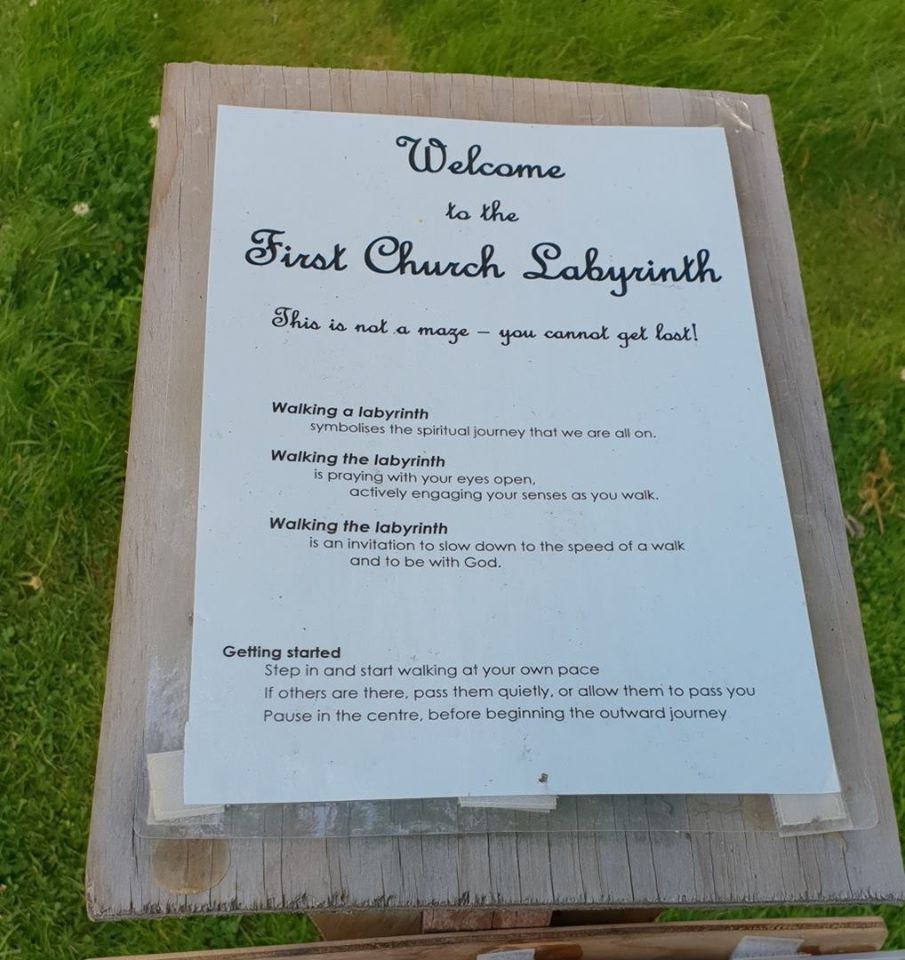 Welcome
to the
First Church Labyrinth
This is not a maze – you cannot get lost!
Walking a labyrinth
symbolises the spiritual journey that we are all on.
Walking the labyrinth
is praying with your eyes open,
actively engaging your senses as you walk.
Walking the labyrinth
is an invitation to slow down to the speed of a walk
and to be with God.
Getting started
Step in and start walking at your own pace
If others are there, pass them quietly, or allow them to pass you
Pause in the centre, before beginning the outward journey